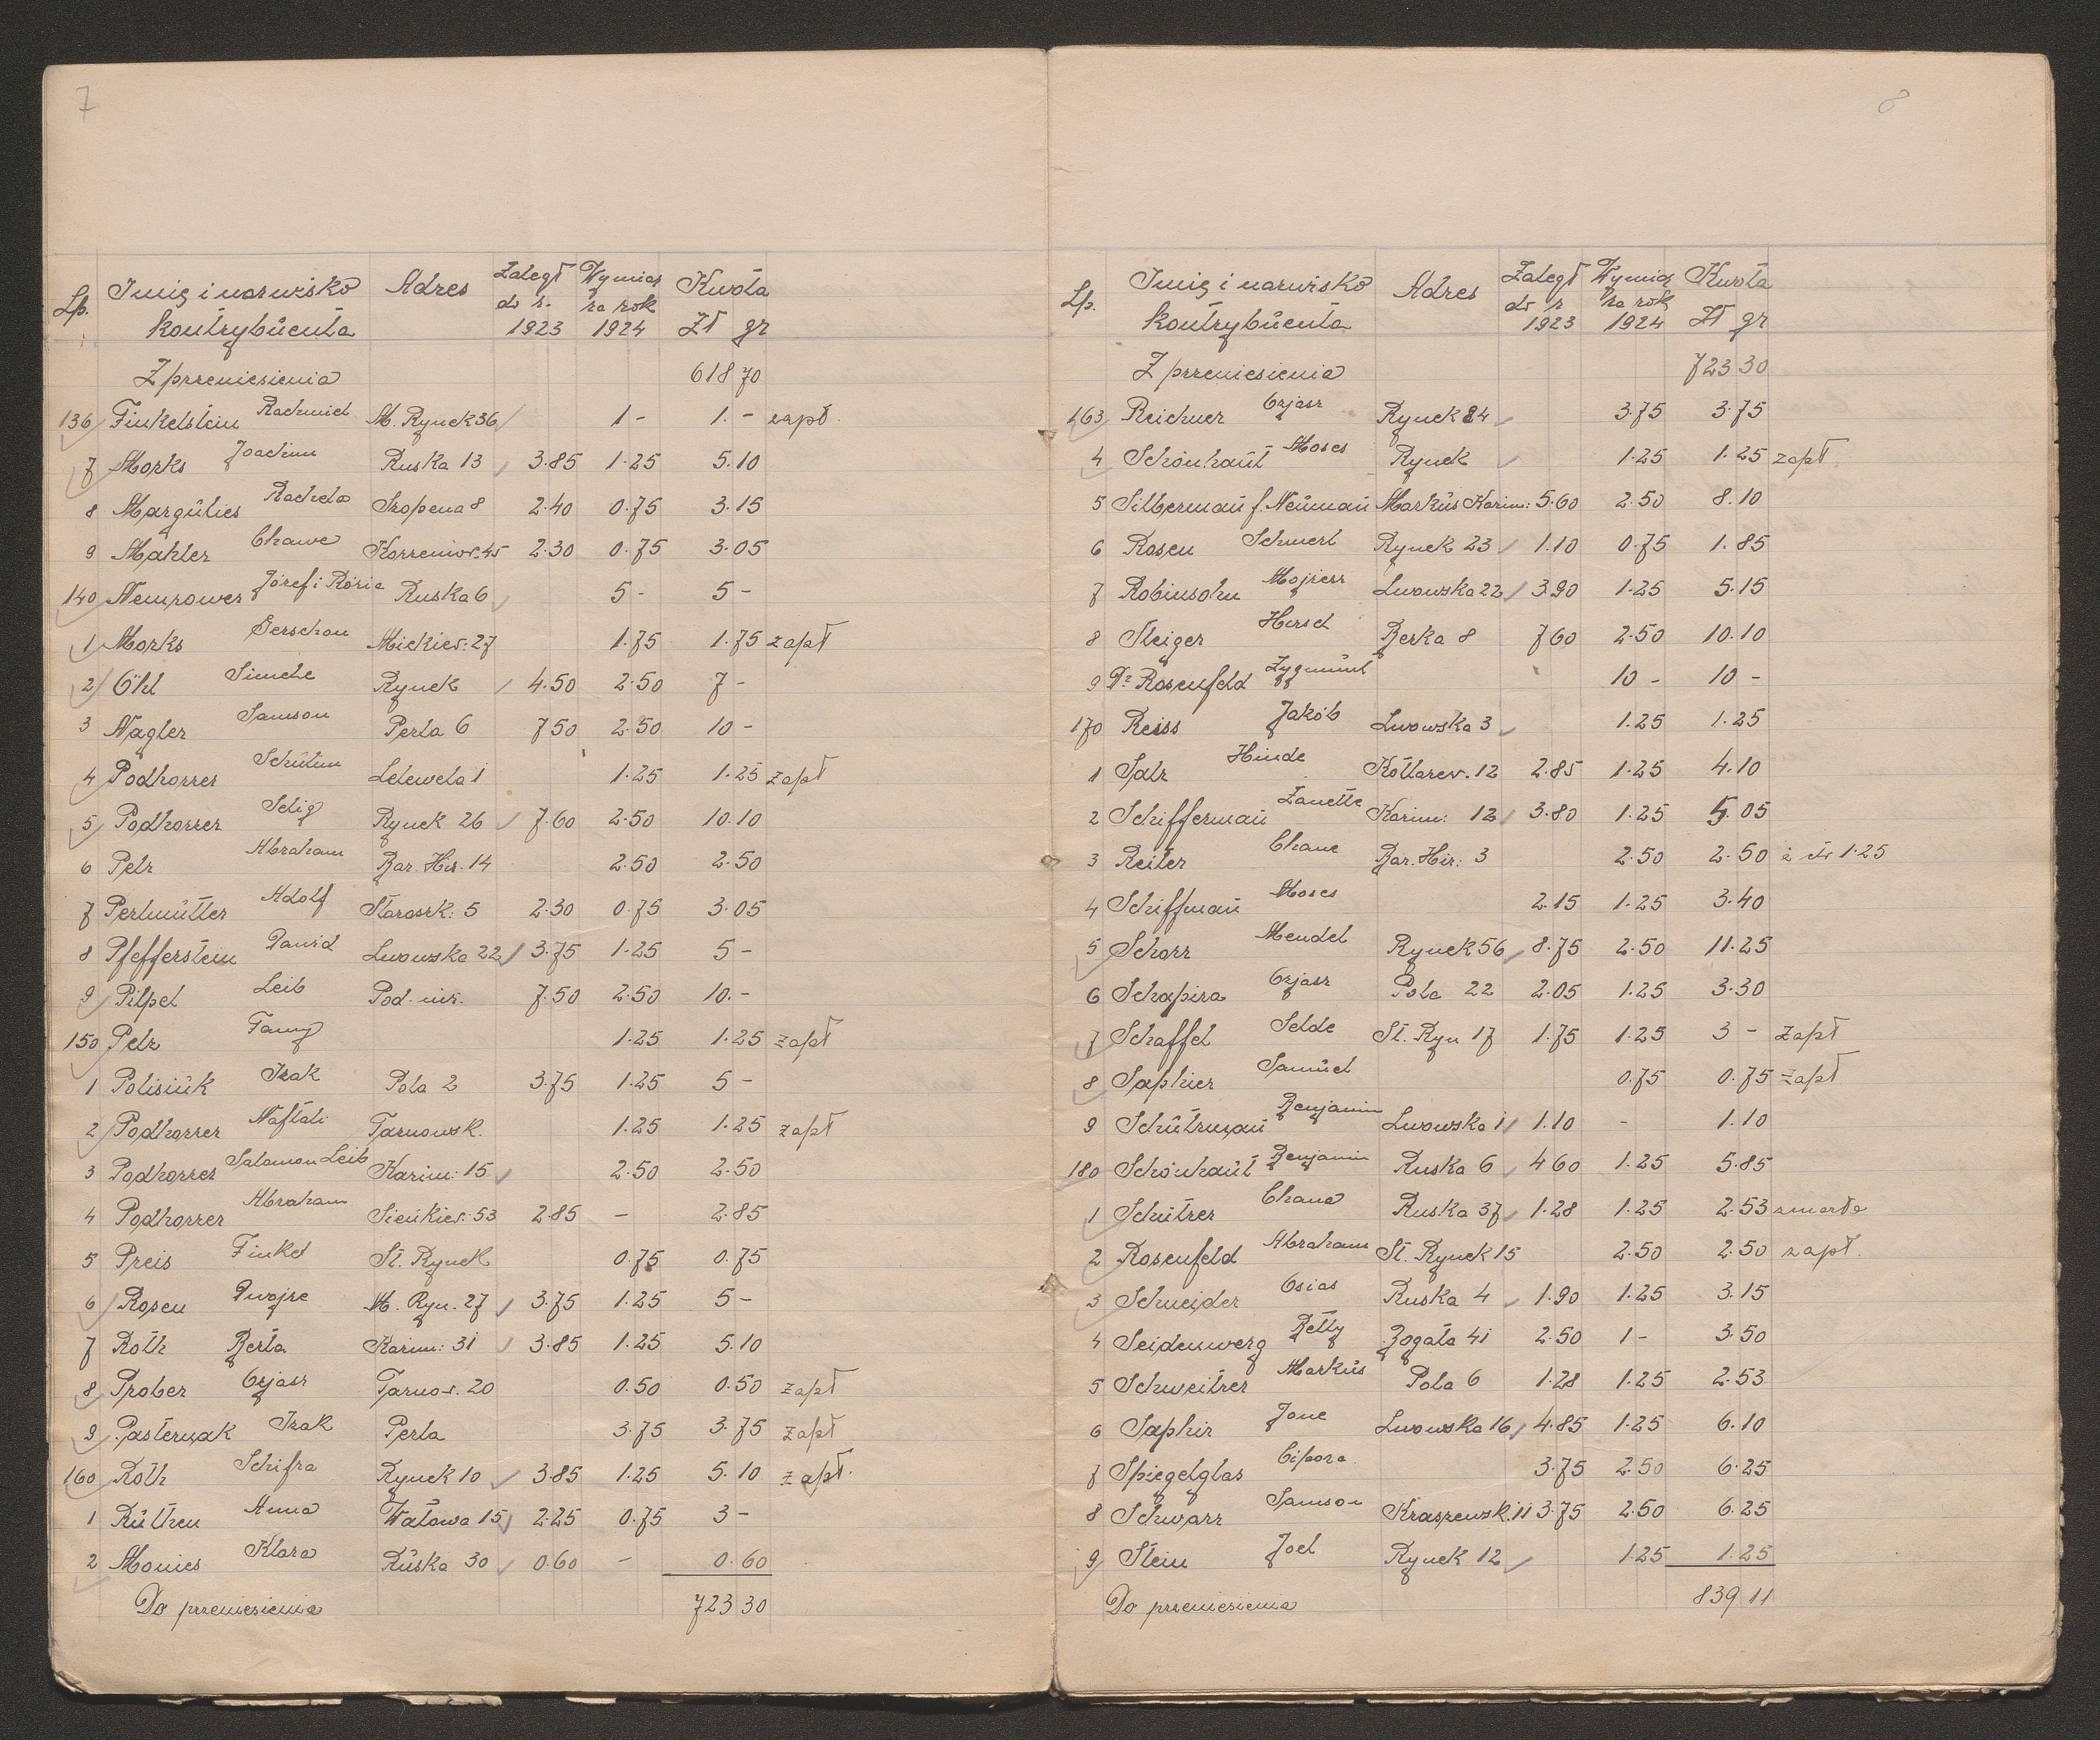 7
Lp. Imię i nazwisko kontrybuenta Adres Zaległ do r. 1923 Wymiar za rok 1924 Kwota Zł gr
Z przeniesienia 618 70
136 Finkelstein Rachmiel M. Rynek 36 1 - 1.- zapł.
7 Morks Joachim Ruska 13 3.85 1.25 5.10
8 Margulies Rachela Szopena 8 2.40 0.75 3.15
9 Mahler Chawe Korzeniow. 45 2.30 0.75 3.05
140 Nempower Józef i Rózia Ruska 6 5 - 5 -
1 Morks Gerschon Mickiew: 27 1.75 1.75 zapł
2 Öhl Simche Rynek 4.50 2.50 7 -
3 Nagler Samson Perla 6 7 50 2.50 10 -
4 Podhorzer Schulim Lelewela 1 1.25 1.25 zapł
5 Podhorzer Selig Rynek 26 7.60 2.50 10.10
6 Pelz Abraham Bar. Hir. 14 2.50 2.50
7 Perlmutter Adolf Starozk: 5 2.30 0.75 3.05
8 Pfefferstein Dawid Lwowska 22 3.75 1.25 5 -
9 Pilpel Leib Pod. 7.50 2.50 10.-
150 Pelz Fany 1.25 1.25 zapł
1 Polisiuk Izak Pola 2 3.75 1.25 5 -
2 Podhorzer Naftali Tarnowsk. 1.25 1.25 zapł
3 Podhorzer Salamon Leib Kazim: 15 2.50 2.50
4 Podhorzer Abraham Sienkiew: 53 2.85 - 2.85
5 Preis Finkel St. Rynek 0.75 0.75
6 Rosen Dwojre M. Ryn. 27 3.75 1.25 5 -
7 Roth Berta Kazim: 31 3.85 1.25 5.10
8 Prober Ozjasz Tarnow. 20 0.50 0.50 zapł
9 Pasternak Izak Perla 3.75 3.75 zapł
160 Roth Schifra Rynek 10 3.85 1.25 5.10 zapł.
1 Ruthen Anna Wałowa 15 2.25 0.75 3 -
2 Monies Klara Ruska 30 0.60 - 0.60
Do przeniesienia 723 30
8
Lp. Imię i nazwisko kontrybuenta Adres Zaległ do r 1923 Wymiar za rok 1924 Kwota Zł gr
Z przeniesienia 723 30
163 Reichner Ozjasz Rynek 24 3.75 3.75
4 Schönhaut Moses Rynek 1.25 1.25 zapł.
5 Silberman f. Neuman Markus Kazim: 5.60 2.50 8.10
6 Rosen Schmerl Rynek 23 1.10 0.75 1.85
7 Robinsohn Mojżesz Lwowska 22 3.90 1.25 5.15
8 Steiger Hersch Berka 8 7 60 2.50 10.10
9 Dr Rosenfeld Zygmunt 10 - 10 -
170 Reiss Jakób Lwowska 3 1.25 1.25
1 Salz Hinde Kotlarew. 12 2.85 1.25 4.10
2 Schifferman Zanette Kazim: 12 3.80 1.25 5.05
3 Reiter Chane Bar. Hir: 3 2.50 2.50 1.25
4 Schiffman Moses 2.15 1.25 3.40
5 Schorr Mendel Rynek 56 8.75 2.50 11.25
6 Schapira Ozjasz Pola 22 2.05 1.25 3.30
7 Schaffel Selde St. Ryn 17 1.75 1.25 3 - zapł
8 Saphier Samuel 0.75 0.75 zapł
9 Schutzman Benjamin Lwowska 1 1.10 - 1.10
180 Schönhaut Benjamin Ruska 6 4 60 1.25 5.85
1 Schutzer Chana Ruska 37 1.28 1.25 2.53 zmarła
2 Rosenfeld Abraham St. Rynek 15 2.50 2.50 zapł.
3 Schneider Osias Ruska 4 1.90 1.25 3.15
4 Seidenwerg Betty Zogala 41 2.50 1 - 3.50
5 Schweitzer Markus Pola 6 1.28 1.25 2.53
6 Saphir Jone Lwowska 16 4.85 1.25 6.10
7 Spiegelglas Cipora 3.75 2.50 6.25
8 Schwarz Samson Kraszewsk. 11 3.75 2.50 6.25
9 Stein Joel Rynek 12 1.25 1.25
Do przeniesienia 839 11